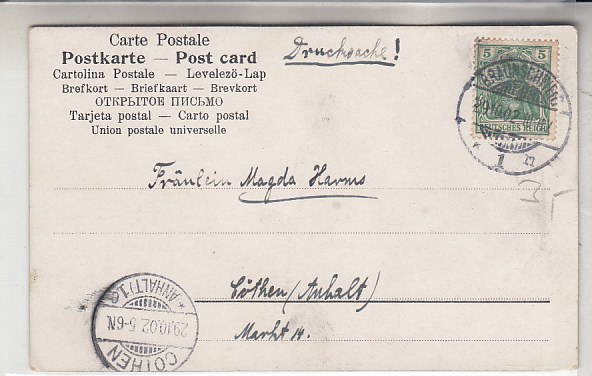 Carte Postale
Postkarte — Post card
Cartolina Postale — Levelező-Lap
Brefkort — Briefkaart — Brevkort
ОТКРЫТОЕ ПИСЬМО
Tarjeta postal — Carto postal
Union postale universelle
Drucksache!
5 5
DEUTSCHES REICH
BRAUNSCHWEIG
29.10.02
1 n
Fräulein Magda Harms
Cöthen (Anhalt)
Markt 14.
CÖTHEN
29.10.02. 5-6N.
(ANHALT) 1